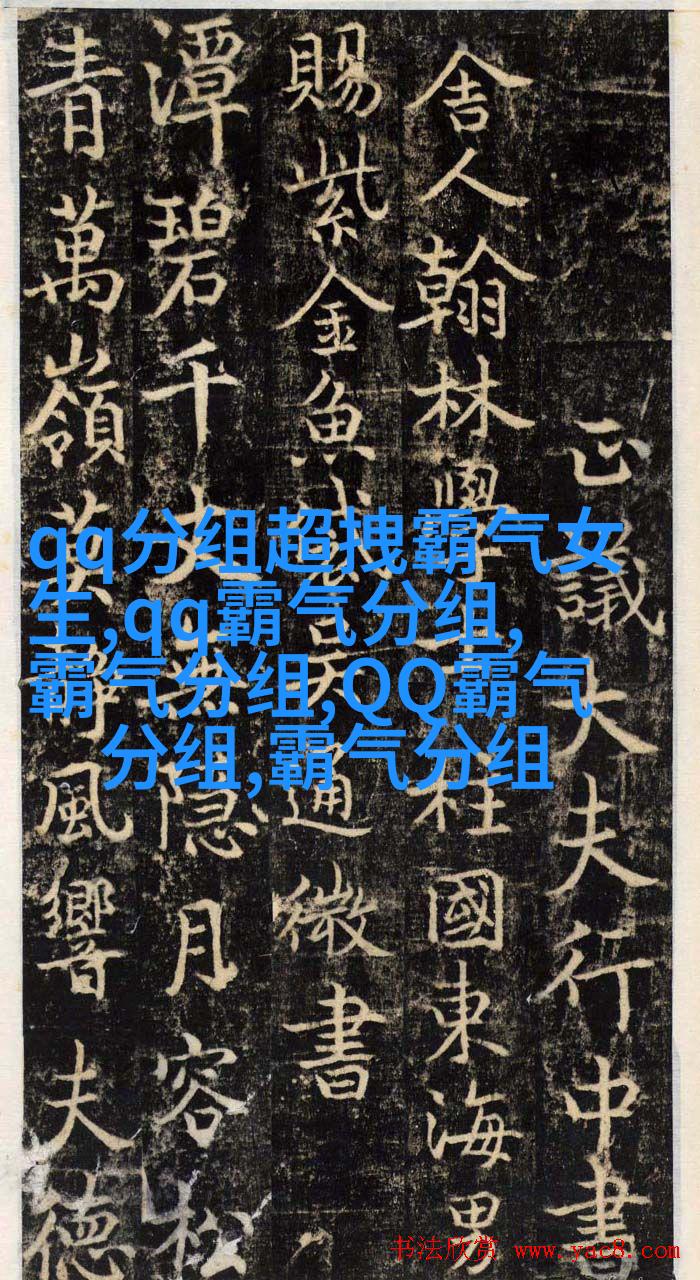 正議大夫行中書
舍人翰林學柱國東海男
賜紫金魚通微書
潭碧千隱月容松
青萬嶺風響夫德
qq分组超拽霸气女
生,qq霸气分组,
霸气分组,QQ霸气
分组,霸气分组
书法欣赏 www.yac8.com